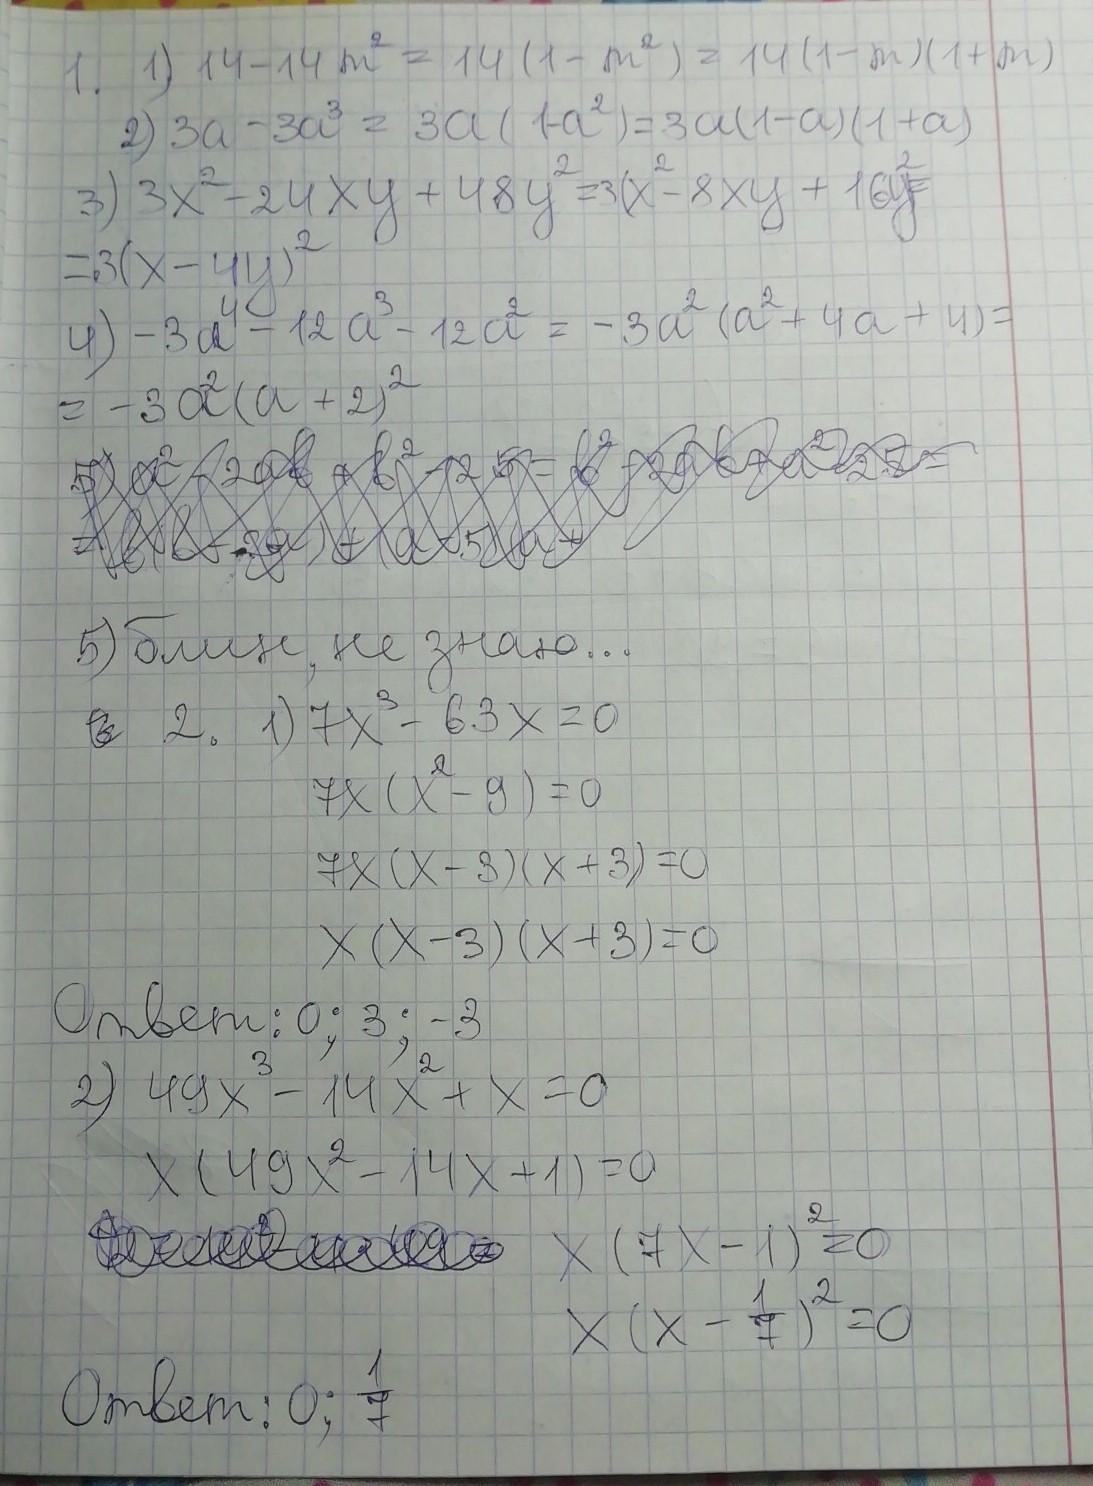 1. 1) 14-14m² = 14(1-m²) = 14(1-m)(1+m)
2) 3a-3a³ = 3a(1-a²)=3a(1-a)(1+a)
3) 3x²-24xy+48y²=3(x²-8xy+16y²=
=3(x-4y)²
4) -3a⁴-12a³-12a² = -3a²(a²+4a+4)=
= -3a²(a+2)²
5) блин, не знаю...
2. 1) 7x³-63x=0
7x(x²-9)=0
7x(x-3)(x+3)=0
x(x-3)(x+3)=0
Ответ: 0; 3; -3
2) 49x³-14x²+x=0
x(49x²-14x+1)=0
x(7x-1)²=0
x(x-1/7)²=0
Ответ: 0; 1/7